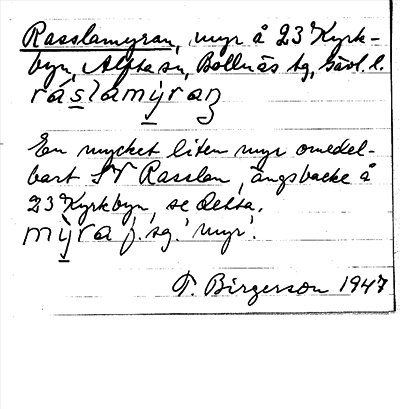 Rasslamyran, myr å 23 Kyrk-
byn, Alfta sn, Bollnäs tg, Gävl. l.
ráslamỳraɳ
En mycket liten myr omedel-
bart SV Rasslan, ängsbacke å
23 Kyrkbyn, se detta.
mỳra f. sg. 'myr'.
T. Birgerson 1947